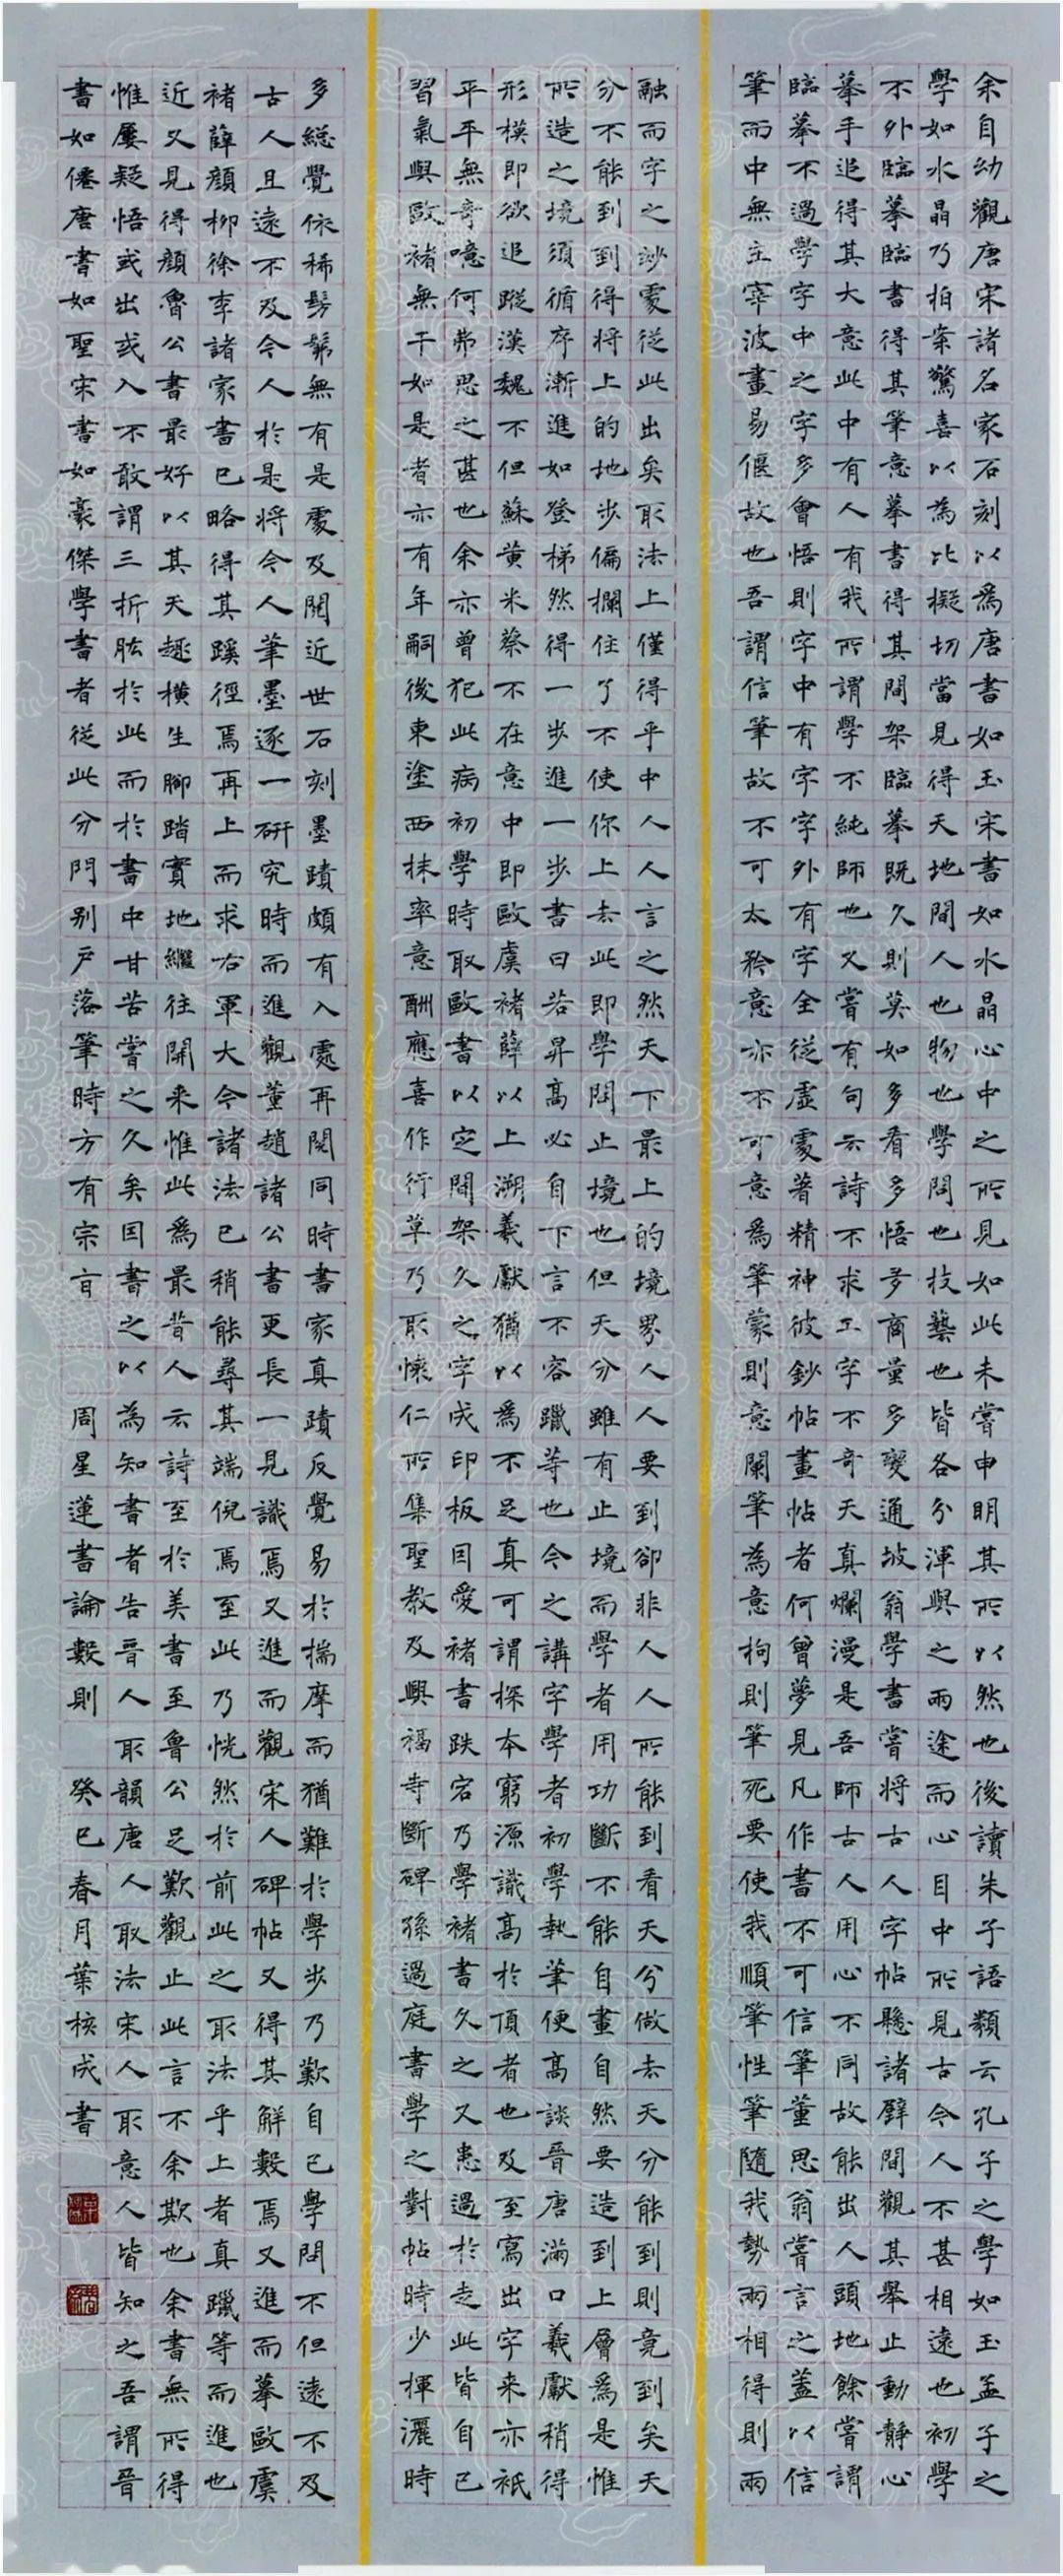 余自幼觀唐宋諸名家石刻以爲唐書如玉宋書如水晶心中之所見如此未嘗申明其所以然也後讀朱子語類云孔子之學如玉孟子之
學如水晶乃拍案驚喜以為比擬切當見得天地間人也物也學問也技藝也皆各分渾與之兩途而心目中所見古今人不甚相遠也初學
不外臨摹臨書得其筆意摹書得其間架臨摹既久則莫如多看多悟多商量多變通坡翁學書嘗將古人字帖懸諸壁間觀其舉止動靜心
摹手追得其大意此中有人有我所謂學不純師也又嘗有句云詩不求工字不奇天真爛漫是吾師古人用心不同故能出人頭地餘嘗謂
臨摹不過學字中之字多會悟則字中有字字外有字全從虛處著精神彼鈔帖畫帖者何曾夢見凡作書不可信筆董思翁嘗言之蓋以信
筆而中無主宰波畫易偃故也吾謂信筆故不可太矜意亦不可意爲筆蒙則意闌筆為意拘則筆死要使我順筆性筆隨我勢兩相得則兩
融而字之妙處從此出矣取法上僅得乎中人人言之然天下最上的境界人人要到卻非人人所能到看天分做去天分能到則竟到矣天
分不能到到得將上的地步偏攔住了不使你上去此即學問止境也但天分雖有止境而學者用功斷不能自畫自然要造到上層爲是惟
所造之境須循序漸進如登梯然得一步進一步書曰若昇高必自下言不容躐等也今之講字學者初學執筆便高談晉唐滿口羲獻稍得
形模即欲追蹤漢魏不但蘇黃米蔡不在意中即歐虞褚薛以上溯羲獻猶以為不足真可謂探本窮源識高於頂者也及至寫出字来亦祇
平平無奇噫何弗思之甚也余亦曾犯此病初學時取歐書以定間架久之字成印板因愛褚書跌宕乃學褚書久之又患過於走此皆自己
習氣與歐褚無干如是者亦有年嗣後東塗西抹率意酬應喜作行草乃取懷仁所集聖教及興福寺斷碑孫過庭書學之對帖時少揮灑時
多總覺依稀髣髴無有是處及閱近世石刻墨蹟頗有入處再閱同時書家真蹟反覺易於揣摩而猶難於學步乃歎自己學問不但遠不及
古人且遠不及今人於是將今人筆墨逐一研究時而進觀董趙諸公書更長一見識焉又進而觀宋人碑帖又得其解數焉又進而摹歐虞
褚薛顏柳徐李諸家書已略得其蹊徑焉再上而求右軍大令諸法已稍能尋其端倪焉至此乃恍然於前此之取法乎上者真躐等而進也
近又見得顏魯公書最好以其天趣橫生腳踏實地繼往開来惟此爲最昔人云詩至於美書至魯公足歎觀止此言不余欺也余書無所得
惟屢疑悟或出或入不敢謂三折肱於此而於書中甘苦嘗之久矣因書之以為知書者告晉人取韻唐人取法宋人取意人皆知之吾謂晉
書如僊唐書如聖宋書如豪傑學書者從此分門別戶落筆時方有宗旨 周星蓮書論數則 癸巳春月葉核成書